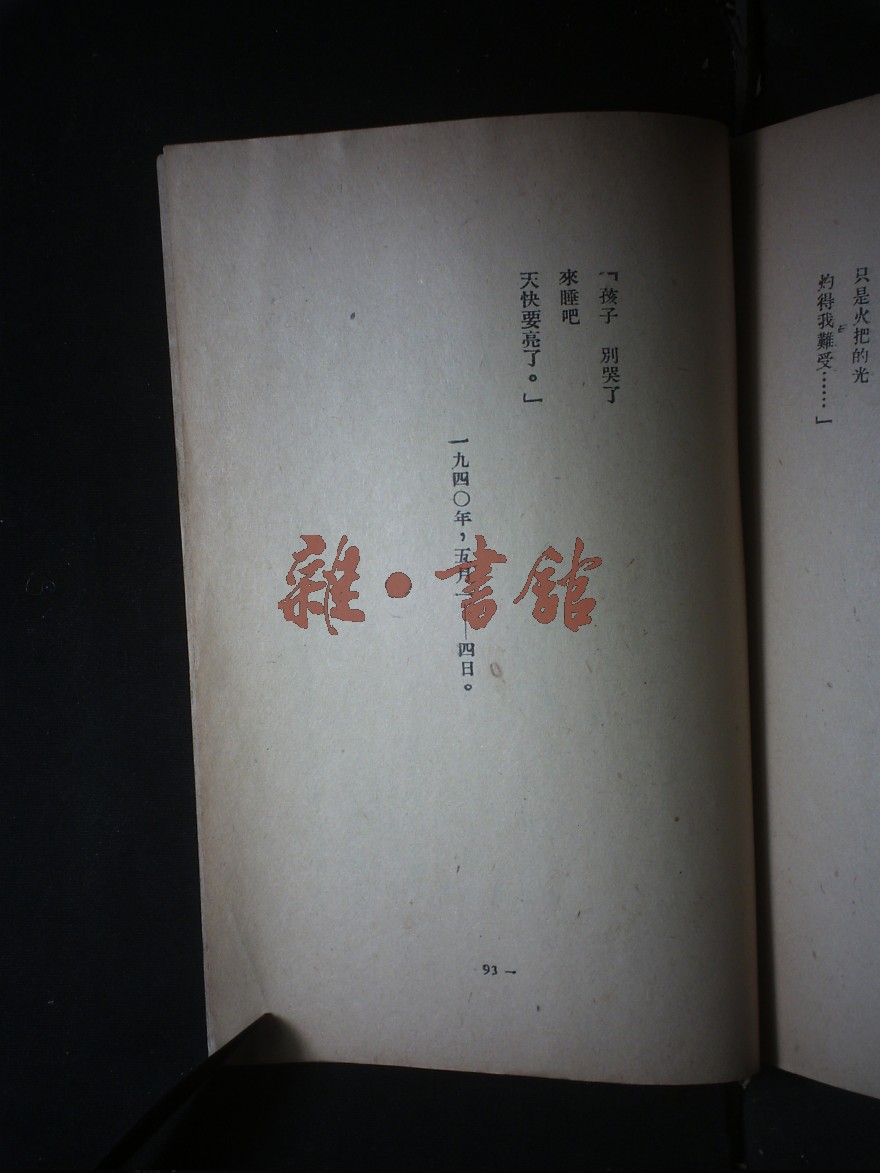 只是火把的光
灼得我難受……」
「孩子　別哭了
來睡吧
天快要亮了。」
一九四〇年，五月一—四日。
93 —
雜·書館